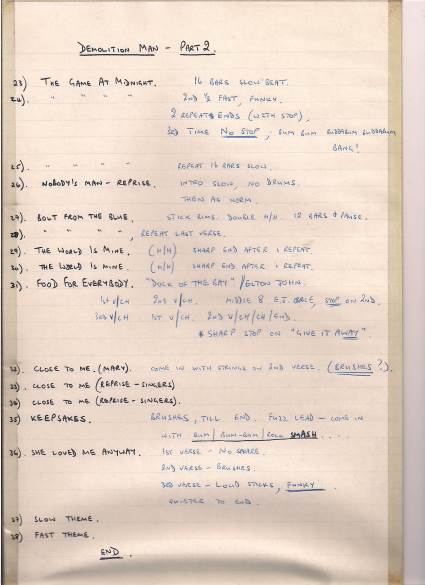 DEMOLITION MAN - PART 2.
23) THE GAME AT MIDNIGHT. 16 BARS SLOW BEAT.
24). " " " " 2ND ½ FAST, FUNKY.
2 REPEATS ENDS (WITH STOP),
3RD TIME NO STOP, BUM BUM BUDDABUM BUDDABUM
BANG!
25). " " " " REPEAT 16 BARS SLOW.
26). NOBODY'S MAN - REPRISE. INTRO SLOW, NO DRUMS.
THEN AS NORM.
27). BOLT FROM THE BLUE. STICK RIMS. DOUBLE H/H. 12 BARS & PAUSE.
28). " " " ", REPEAT LAST VERSE.
29). THE WORLD IS MINE. (H/H) SHARP END AFTER 1 REPEAT.
30). THE WORLD IS MINE. (H/H) SHARP END AFTER 1 REPEAT.
31) FOOD FOR EVERYBODY. "DOCK OF THE BAY" / ELTON JOHN.
1ST V/CH 2ND V/CH. MIDDLE 8 STOP ON 2ND.
3RD V/CH 1ST V/CH. 2ND V/CH/CH/END.
* SHARP STOP ON "GIVE IT AWAY".
32). CLOSE TO ME. (MARY). COME IN WITH STRINGS ON 2ND VERSE. (BRUSHES?).
33). CLOSE TO ME (REPRISE - SINGERS)
34) CLOSE TO ME (REPRISE - SINGERS).
35) KEEPSAKES. BRUSHES, TILL END. FUZZ LEAD - COME IN
WITH BUM/BUM-BUM/ROLL SMASH....
36). SHE LOVED ME ANYWAY. 1ST VERSE - NO SNARE.
2ND VERSE - BRUSHES.
3RD VERSE - LOUD STICKS, FUNKY.
QUIETER TO END.
37) SLOW THEME.
38) FAST THEME.
END.